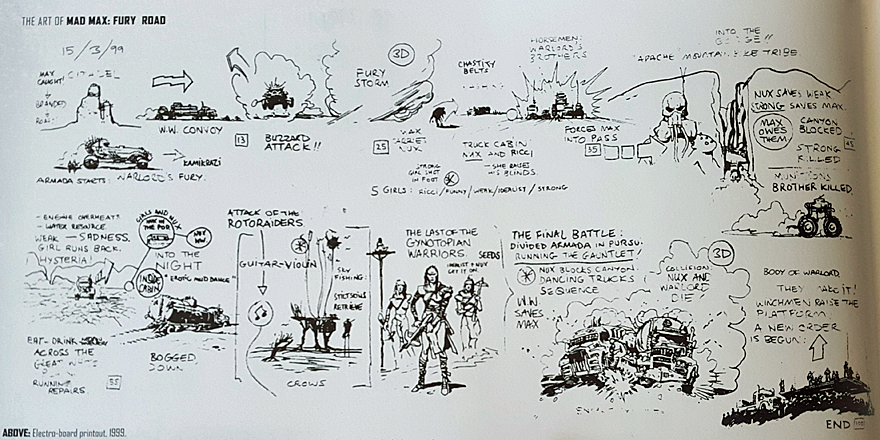 THE ART OF MAD MAX: FURY ROAD
15/3/99
MAX
CAUGHT!
&
BRANDED
CITADEL
W.W. CONVOY
13
BUZZARD
ATTACK!!
FURY
STORM
3D
25
MAX
NUX
CHASTITY
BELTS
TRUCK CABIN
MAX AND RICCI
SHE RAISES
HIS BLINDS.
STRONG
GIRL SHOT
IN FOOT
5 GIRLS: RICCI/FUNNY/WEAK/IDEALIST/STRONG
HORSEMEN:
WARLORD'S
BROTHERS
FORCES MAX
INTO PASS
35
INTO THE
"APACHE MOUNTAIN BIKE TRIBE.
NUX SAVES WEAK
STRONG SAVES MAX.
MAX
OWES
THEM
CANYON
BLOCKED
45
STRONG
KILLED
MUNITIONS
BROTHER KILLED
KAMIKRAZI
ARMADA STARTS: WARLORD'S FURY.
- ENGINE OVERHEAT?
- WATER
WEAK — SADNESS.
GIRL RUNS BACK.
HYSTERIA!
GIRLS AND NUX
IN THE POD
INTO THE
NIGHT
INSIDE
CABIN
"EROTIC MUD DANCE"
BOGGED
DOWN
EAT - DRINK
ACROSS THE
GREAT
RUNNING
REPAIRS.
55
ATTACK OF THE
ROTORAIDERS
GUITAR-VIOLIN
SKY
FISHING:
STILTSONS
RETRIEVE
CROWS
THE LAST OF THE
GYNOTOPIAN
WARRIORS.
SEEDS
IDEALIST & NUX
GET IT ON
THE FINAL BATTLE:
DIVIDED ARMADA IN PURSU.
RUNNING THE GAUNTLET!
NUX BLOCKS CANYON.
DANCING TRUCKS
SEQUENCE
W.W
SAVES
MAX
COLLISION:
NUX AND
WARLORD
DIE!
3D
BODY OF WARLORD
THEY MAKE IT!
WINCHMEN RAISE THE
PLATFORM:
A NEW ORDER
IS BEGUN:
END
ABOVE: Electro-board printout, 1999.